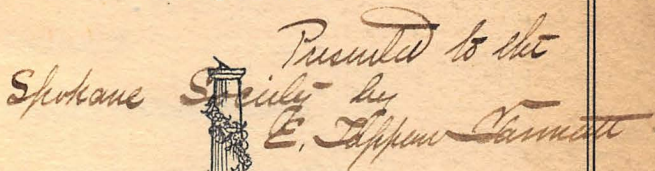 Presented to the
Spokane Society by
E. Tappan Tannatt